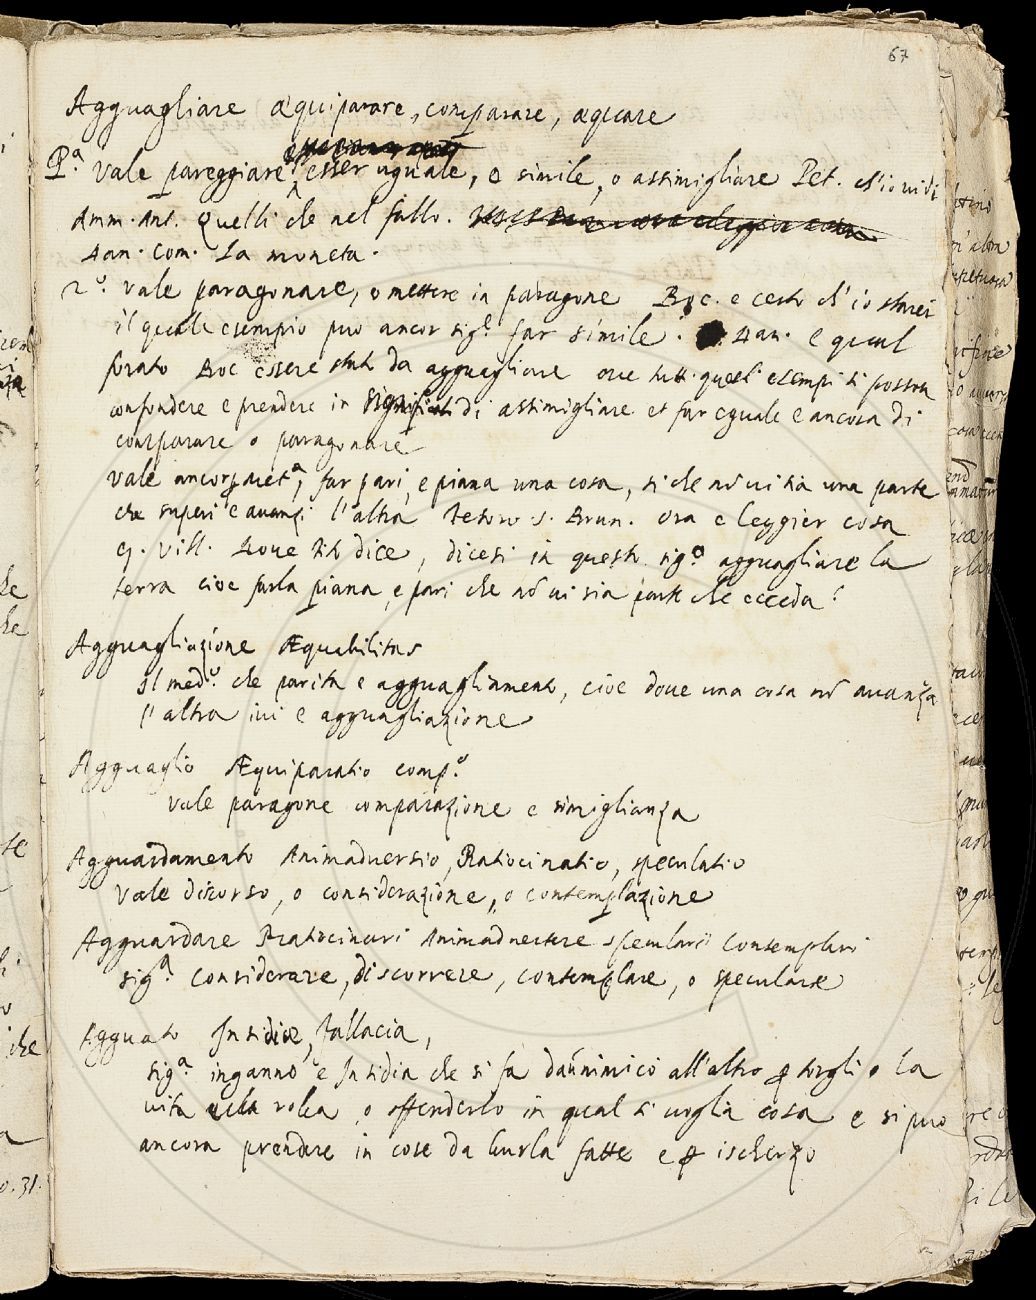 67
Agguagliare æquiparare, comparare, æquare
P.ª vale pareggiare esser uguale, o simile, o assimigliare Pet. ch'io vidi
Amm. Ant. Quelli che nel fallo.
Dan. Com. La moneta.
2.º vale paragonare, o mettere in paragone Boc. e certo ch'io starei
il quale esempio può ancor sig.e far simile. Dan. e qual
forato Boc essere stato da agguagliare ove tutti questi esempi si posson
confondere e prendere in significati di assimigliare et far eguale e ancora di
comparare o paragonare
vale ancor far pari, e piana una cosa, si che nõ vi sia una parte
che superi e avanzi l'altra Tesoro S. Brun. ora e leggier cosa
G. Vill. Dove Tito dice, dicesi in questo sig.o agguagliare la
terra cioe farla piana, e pari che nõ vi sia parte che ecceda.
Agguagliazione Æquabilitas
Il med.º che parità e agguagliamento, cioe dove una cosa nõ avanza
l'altra ivi e agguagliazione
Agguaglio Æquiparatio comp.º
vale paragone comparazione e simiglianza
Agguardamento Animadversio, Ratiocinatio, speculatio
vale discorso, o considerazione, o contemplazione
Agguardare Ratiocinari Animadvertere speculari Contemplari
sig.ª considerare, discorrere, contemplare, o speculare
Agguato Insidiæ, fallacia,
sig.ª inganno e Insidia che si fà da nimico all'altro ꝑ torgli o la
vita o la roba, o offenderlo in qual si voglia cosa e si può
ancora prendere in cose da burla fatte e ꝑ ischerzo